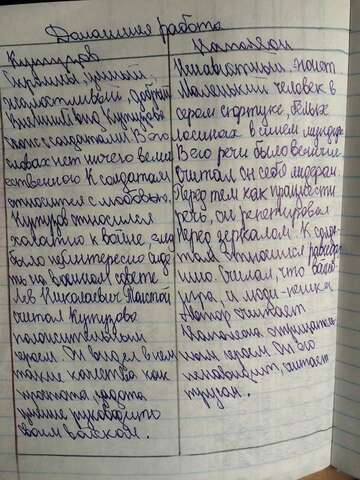 Домашняя работа
Кутузов
Скромный, умный,
жалостливый, добрый
Внешний вид Кутузова
схож с солдатами. В его
словах нет ничего вели
ественного К солдатам
относится с любовью.
Кутузов относился
халатно к войне, ему
было неинтересно сиде
ть на военном совете
Лев Николаевич Толстой
считал Кутузова
положительным
героем. Он видел в нем
такие качества как
простота, доброта
умение руководить
своим войском.
Наполеон
Маленький человек в
сером сюртуке, белых
лосинах в синем мундире
В его речи было величие
считал он себя лидером.
Перед тем как произнести
речь, он репетировал
перед зеркалом. К солда
там относился равноду
шно. Считал, что война
игра, и люди - пешка
Автор считает
Наполеона отрицатель
ным героем. Он его
ненавидит, считает
трусом.